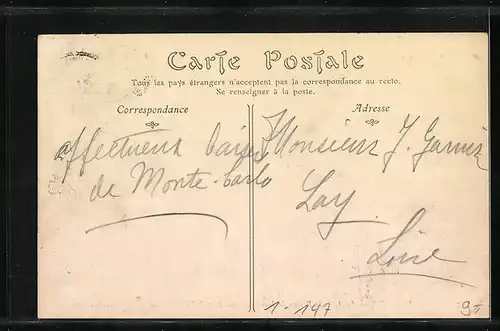 Carte Postale
Tous les pays étrangers n'acceptent pas la correspondance au recto.
Se renseigner à la poste.
Correspondance
Adresse
affectueux baisers
de Monte-Carlo
Monsieur J. Garnier
Lay
Loire
1-147